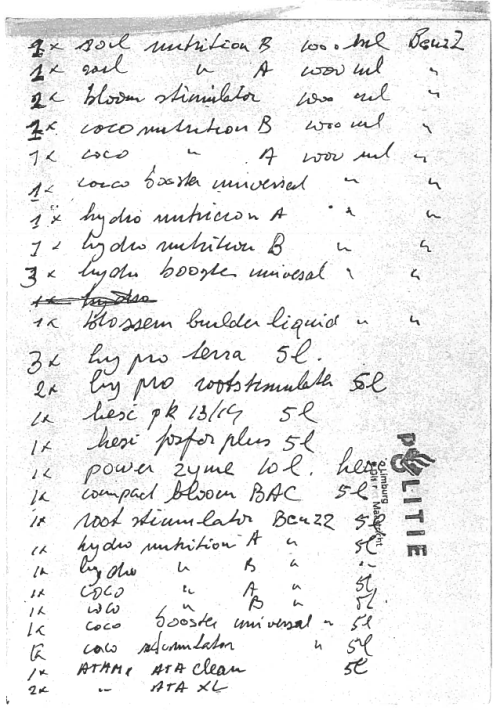 1x soil nutrition B 1000 ml Benzz
1x soil " A 1000 ml "
2x bloom stimulator 1000 ml "
1x coco nutrition B 1000 ml "
1x coco " A 1000 ml "
1x coco booster universal " "
1x hydro nutricion A " "
1x hydro nutrition B " "
3x hydro booster universal " "
1x hydro
1x blossem builder liquid " "
3x hy pro terra 5l.
2x hy pro rootstimulator 5l
1x hesi pk 13/14 5l
1x hesi fosfor plus 5l
1x power zyme 10l. hesi
1x compact bloom BAC 5l
1x root stimulator Benzz 5l
1x hydro nutrition A " 5l
1x hydro " B " "
1x coco " A " 5l
1x coco " B " 5l
1x coco booster universal " 5l
coco stimulator " 5l
1x ATAMI ATA clean 5l
2x " ATA XL
POLITIE
Limburg